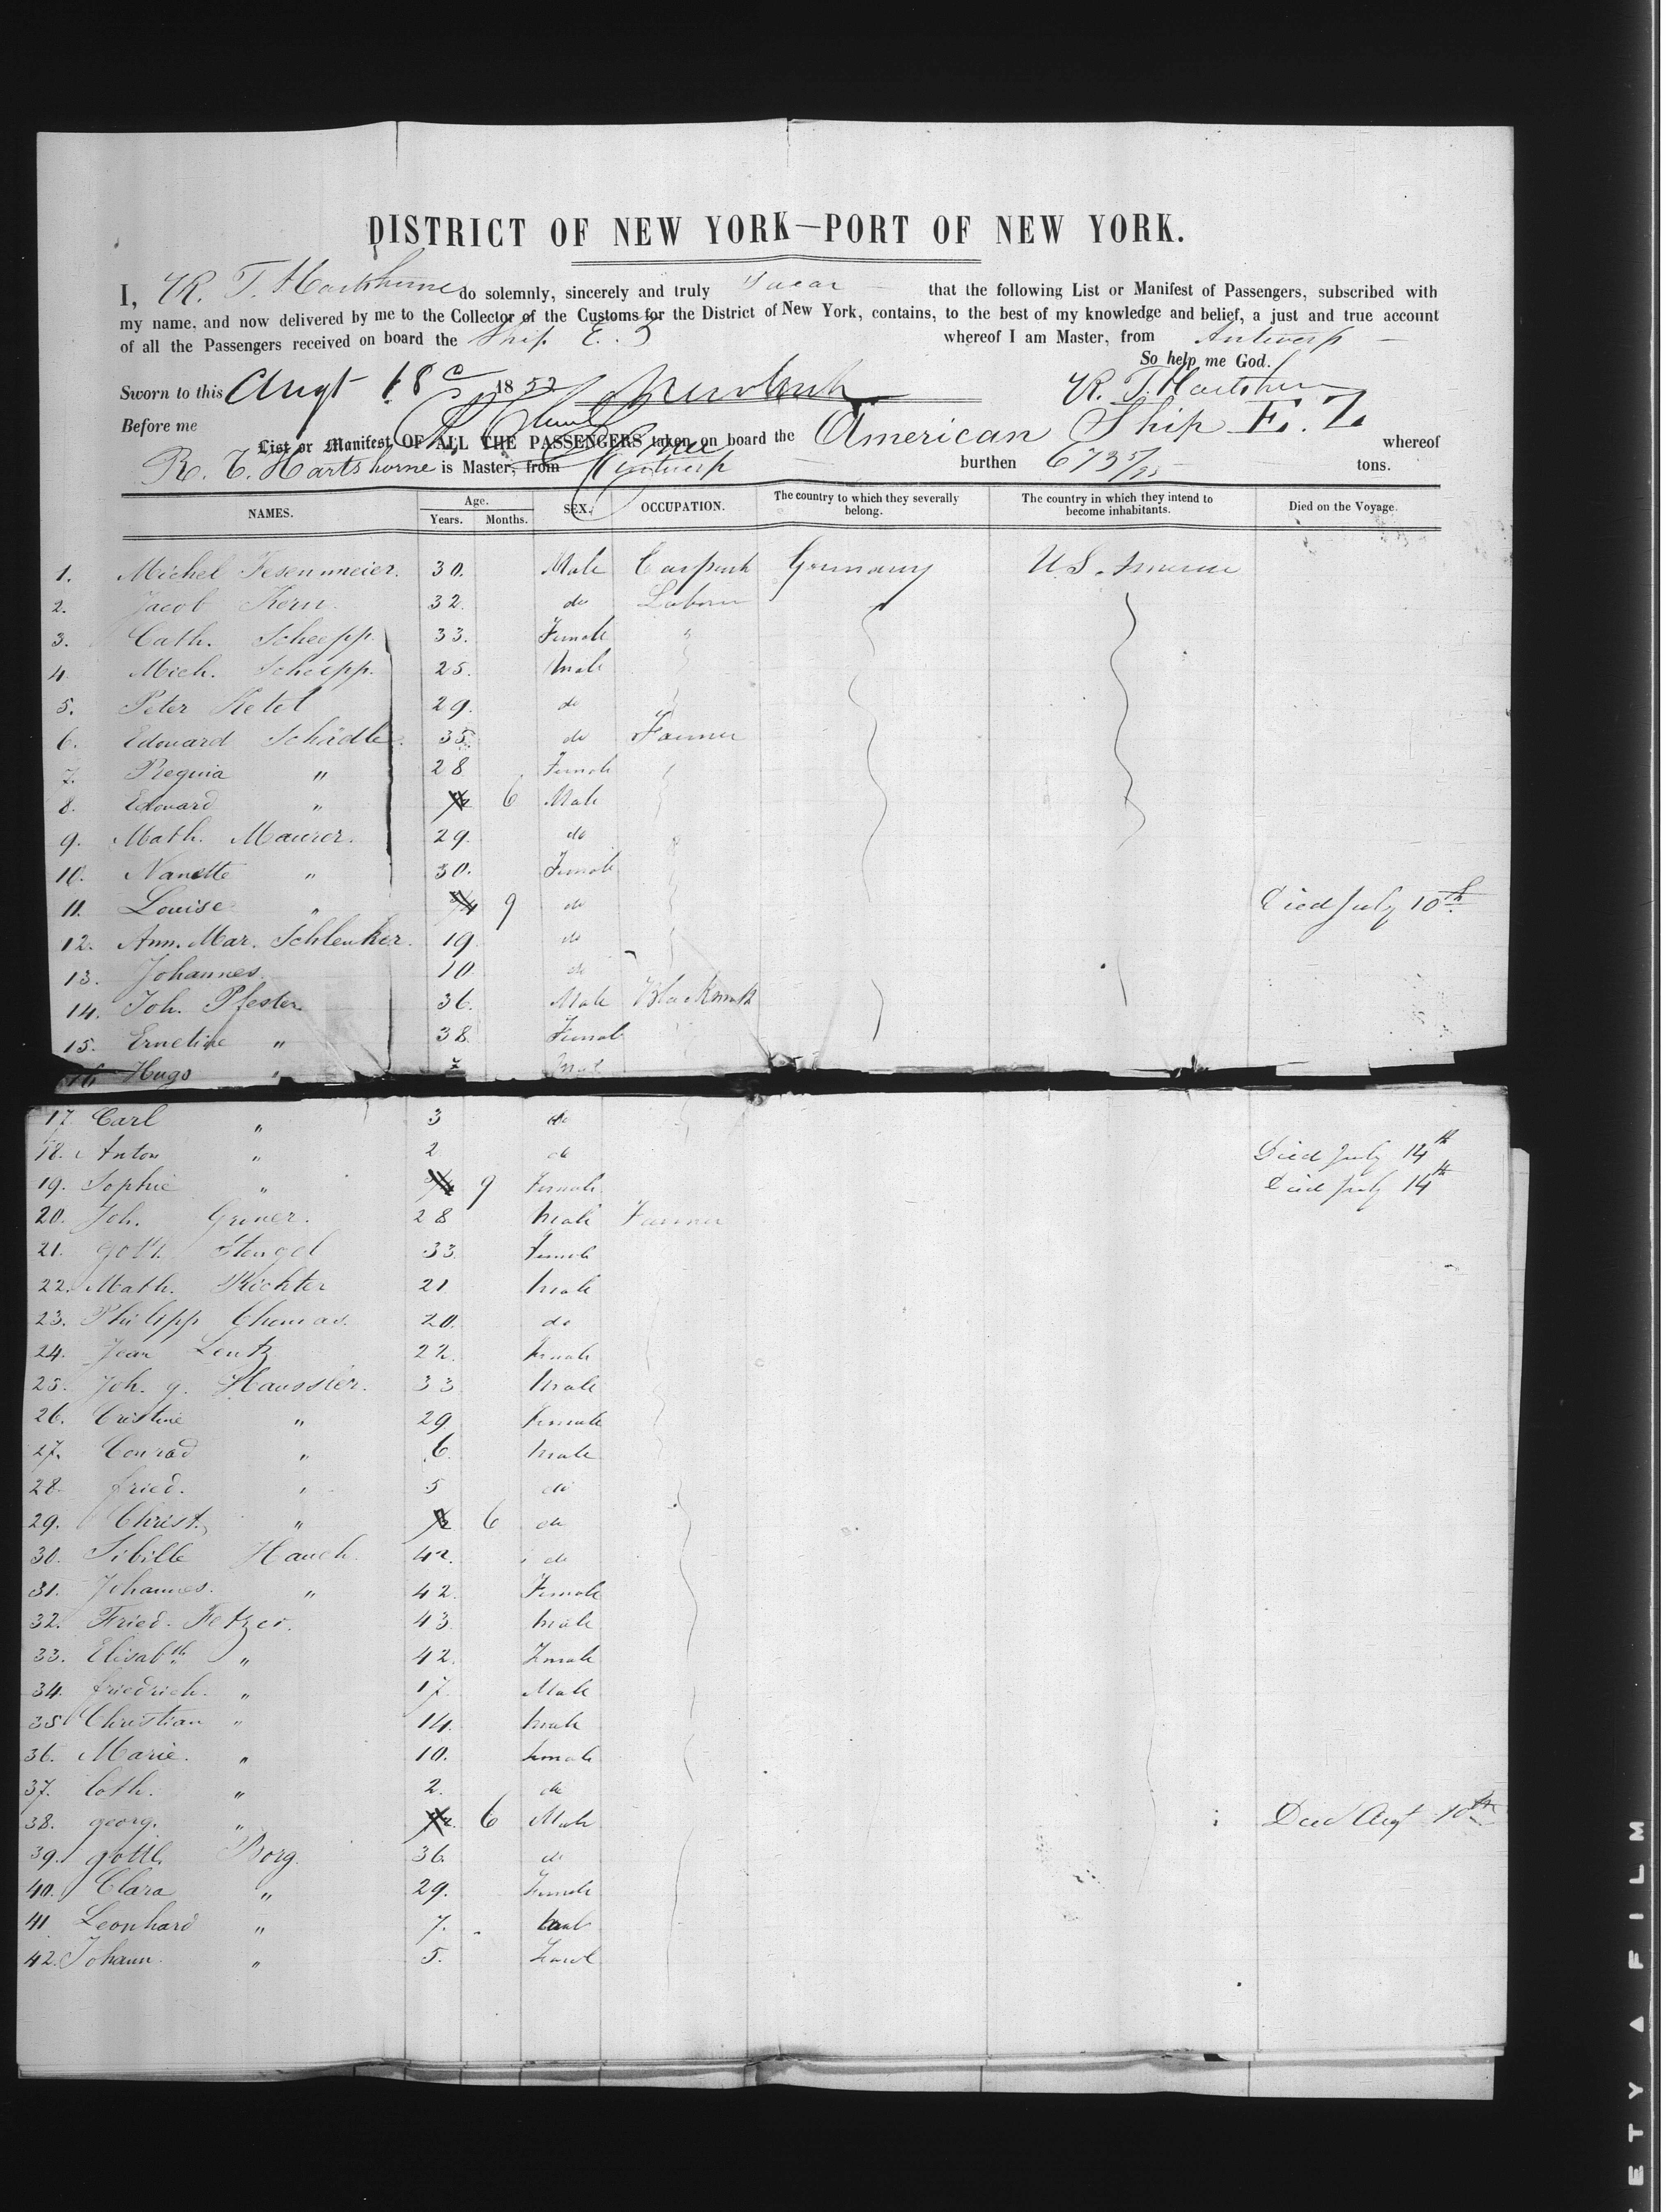 DISTRICT OF NEW YORK—PORT OF NEW YORK.
I, R. T. Hartshorne do solemnly, sincerely and truly swear that the following List or Manifest of Passengers, subscribed with
my name, and now delivered by me to the Collector of the Customs for the District of New York, contains, to the best of my knowledge and belief, a just and true account
of all the Passengers received on board the Ship E. Z whereof I am Master, from Antwerp
So help me God.
Sworn to this Augt 18 1852 R. T. Hartshorne
Before me
List or Manifest OF ALL THE PASSENGERS taken on board the American Ship E. Z whereof
R. T. Hartshorne is Master, from Antwerp burthen 673 5/95 tons.
NAMES. Age. Years. Months. SEX. OCCUPATION. The country to which they severally belong. The country in which they intend to become inhabitants. Died on the Voyage.
1. Michel Fesenmeier. 30. Male Germany U.S. America
2. Jacob Kern. 32. do Laborer
3. Cath. Scheepp. 33. Female "
4. Mich. Scheepp. 25. Male
5. Peter Ketel 29. do
6. Edouard Schädle. 35. do Farmer
7. Regina " 28 Female
8. Edouard " 6 Male
9. Math. Maurer. 29. do
10. Nanette " 30. Female
11. Louise " 9 do Died July 10th
12. Ann. Mar. Schlenker. 19. do
13. Johannes 10 do
14. Joh. Pfester 36. Male Blacksmith
15. Ernetine " 38. Female
16. Hugo "
17. Carl " 3 do
18. Anton " 2 do Died July 14th
19. Sophie " 9 Female Died July 14th
20. Joh. Griner. 28 Male Farmer
21. Goth. Stengel 33. Female
22. Math. Richter 21 Male
23. Philipp Thomas. 20. do
24. Jean Lentz 22. Female
25. Joh. g. Haussler. 33 Male
26. Cristine " 29 Female
27. Conrad " 6. Male
28. fried. " 5 do
29. Christ. " 6 do
30. Sibille Hauch. 42. do
31. Johannes. " 42. Female
32. Fried. Fetzer. 43. Male
33. Elisabth " 42. Female
34. friedrich. " 17. Male
35 Christian " 14. Male
36. Marie. " 10. Female
37. Cath. " 2. do
38. georg. " 6 Male Died Augt 10th
39. gottl. Borg. 36. do
40. Clara " 29. Female
41 Leonhard " 7. Male
42. Johann. " 5.
ETY ▲ FILM